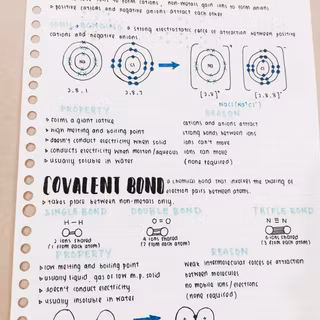 to form cations, non-metals gain ions to form anions.
▹ positive cations and negative anions attract each other
IONIC BONDING
a strong electrostatic force of attraction between positive
cations and negative anions.
Na
Cl
Na
Cl
2,8,1
2,8,7
[2,8]⁺
[2,8,8]⁻
NaCl (Na⁺Cl⁻)
PROPERTY
REASON
▹ forms a giant lattice
cations and anions attract
▹ high melting and boiling point
strong bonds between ions
▹ doesn't conduct electricity when solid
ions can't move
▹ conducts electricity when molten/aqueous
ions can move
▹ usually soluble in water
(none required)
COVALENT BOND
a chemical bond that involves the sharing of
electron pairs between atoms.
▹ takes place between non-metals only.
SINGLE BOND
DOUBLE BOND
TRIPLE BOND
H-H
O=O
N≡N
2 ions shared
4 ions shared
6 ions shared
(1 from each atom)
(2 from each atom)
(3 from each atom)
PROPERTY
REASON
▹ low melting and boiling point
weak intermolecular forces of attraction
▹ usually liquid, gas or low m.p. solid
between molecules
▹ doesn't conduct electricity
no mobile ions/electrons
▹ usually insoluble in water
(none required)